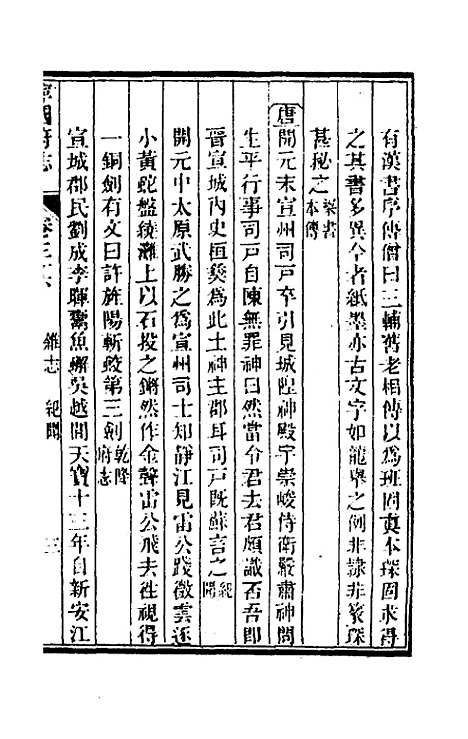 有漢書序傳僧曰三輔舊老相傳以爲班固真本琛固求得
之其書多異今者紙墨亦古文字如龍舉之例非隸非篆琛
甚祕之梁書本傳
唐開元末宣州司戸卒引見城隍神殿宇崇峻侍衞嚴肅神問
生平行事司戸自陳無罪神曰然當令君去君頗識吾否吾卽
晉宣城內史桓彝爲此土神主郡耳司戸旣蘇言之紀聞
開元中太原武勝之爲宣州司士知靜江見雷公踐微雲逐
小黃蛇盤繞灘上以石投之鏘然作金聲雷公飛去往視得
一銅劍有文曰許旌陽斬蛟第三劍乾隆府志
宣城郡民劉成李暉鬻魚蠏吳越間天寶十三年自新安江
寧國府志
卷三六 雜志 紀聞
三